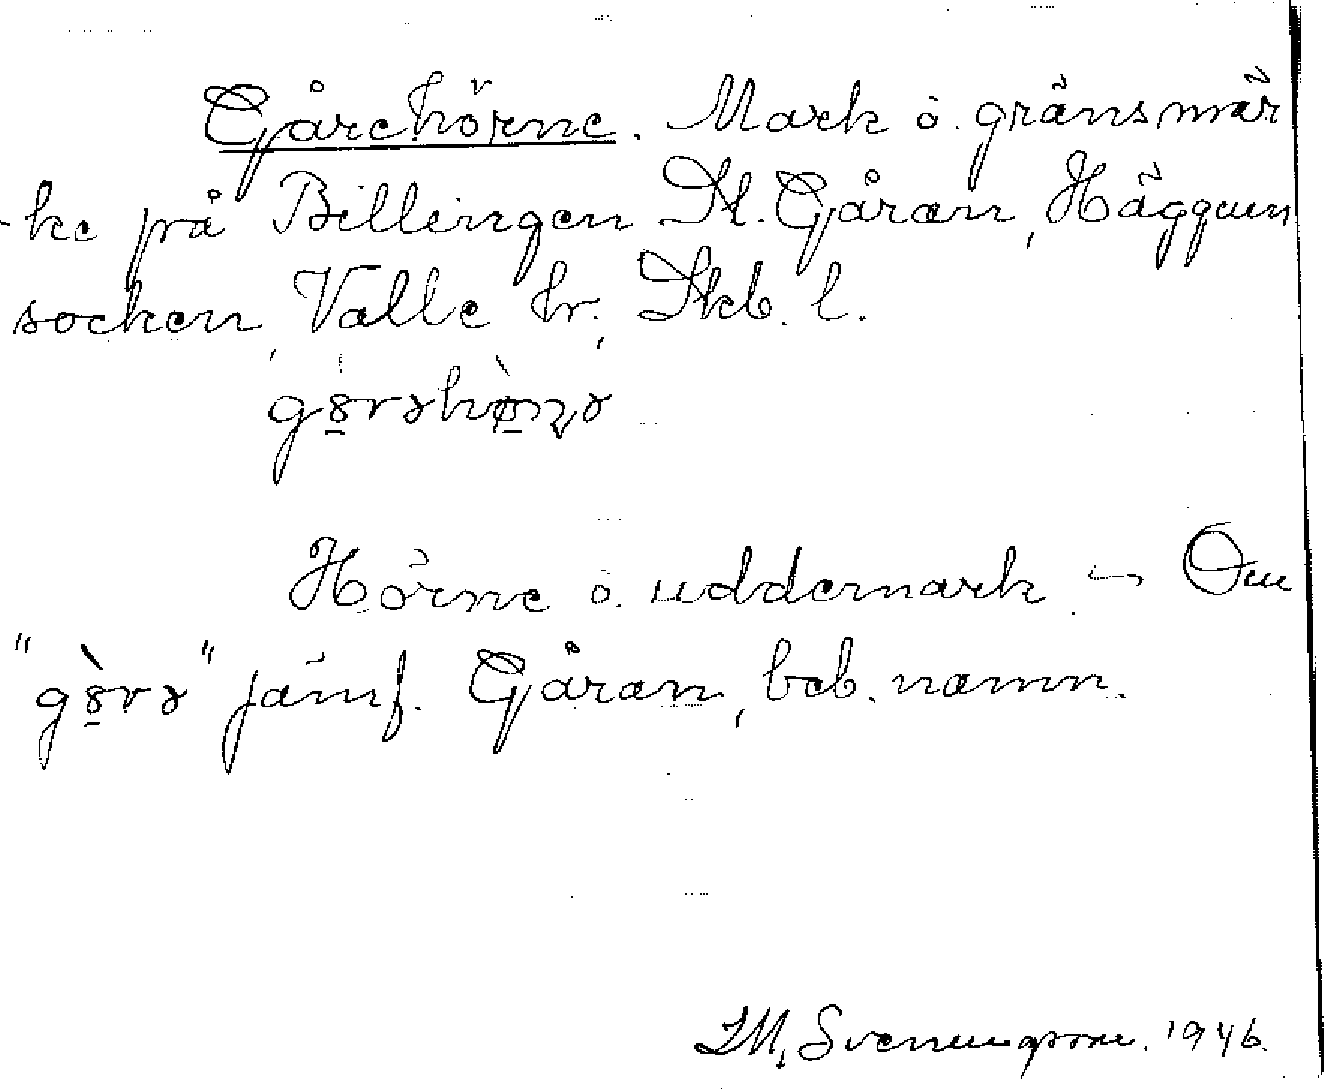 Gårehörne. Mark o. gränsmär
-ke på Billingen St. Gåran, Häggum
socken, Valle hr., Skb. l.
Hörne o. uddemark. - Om
" " jämf. Gåran, beb. namn.
J.M. Svenungsson. 1946.